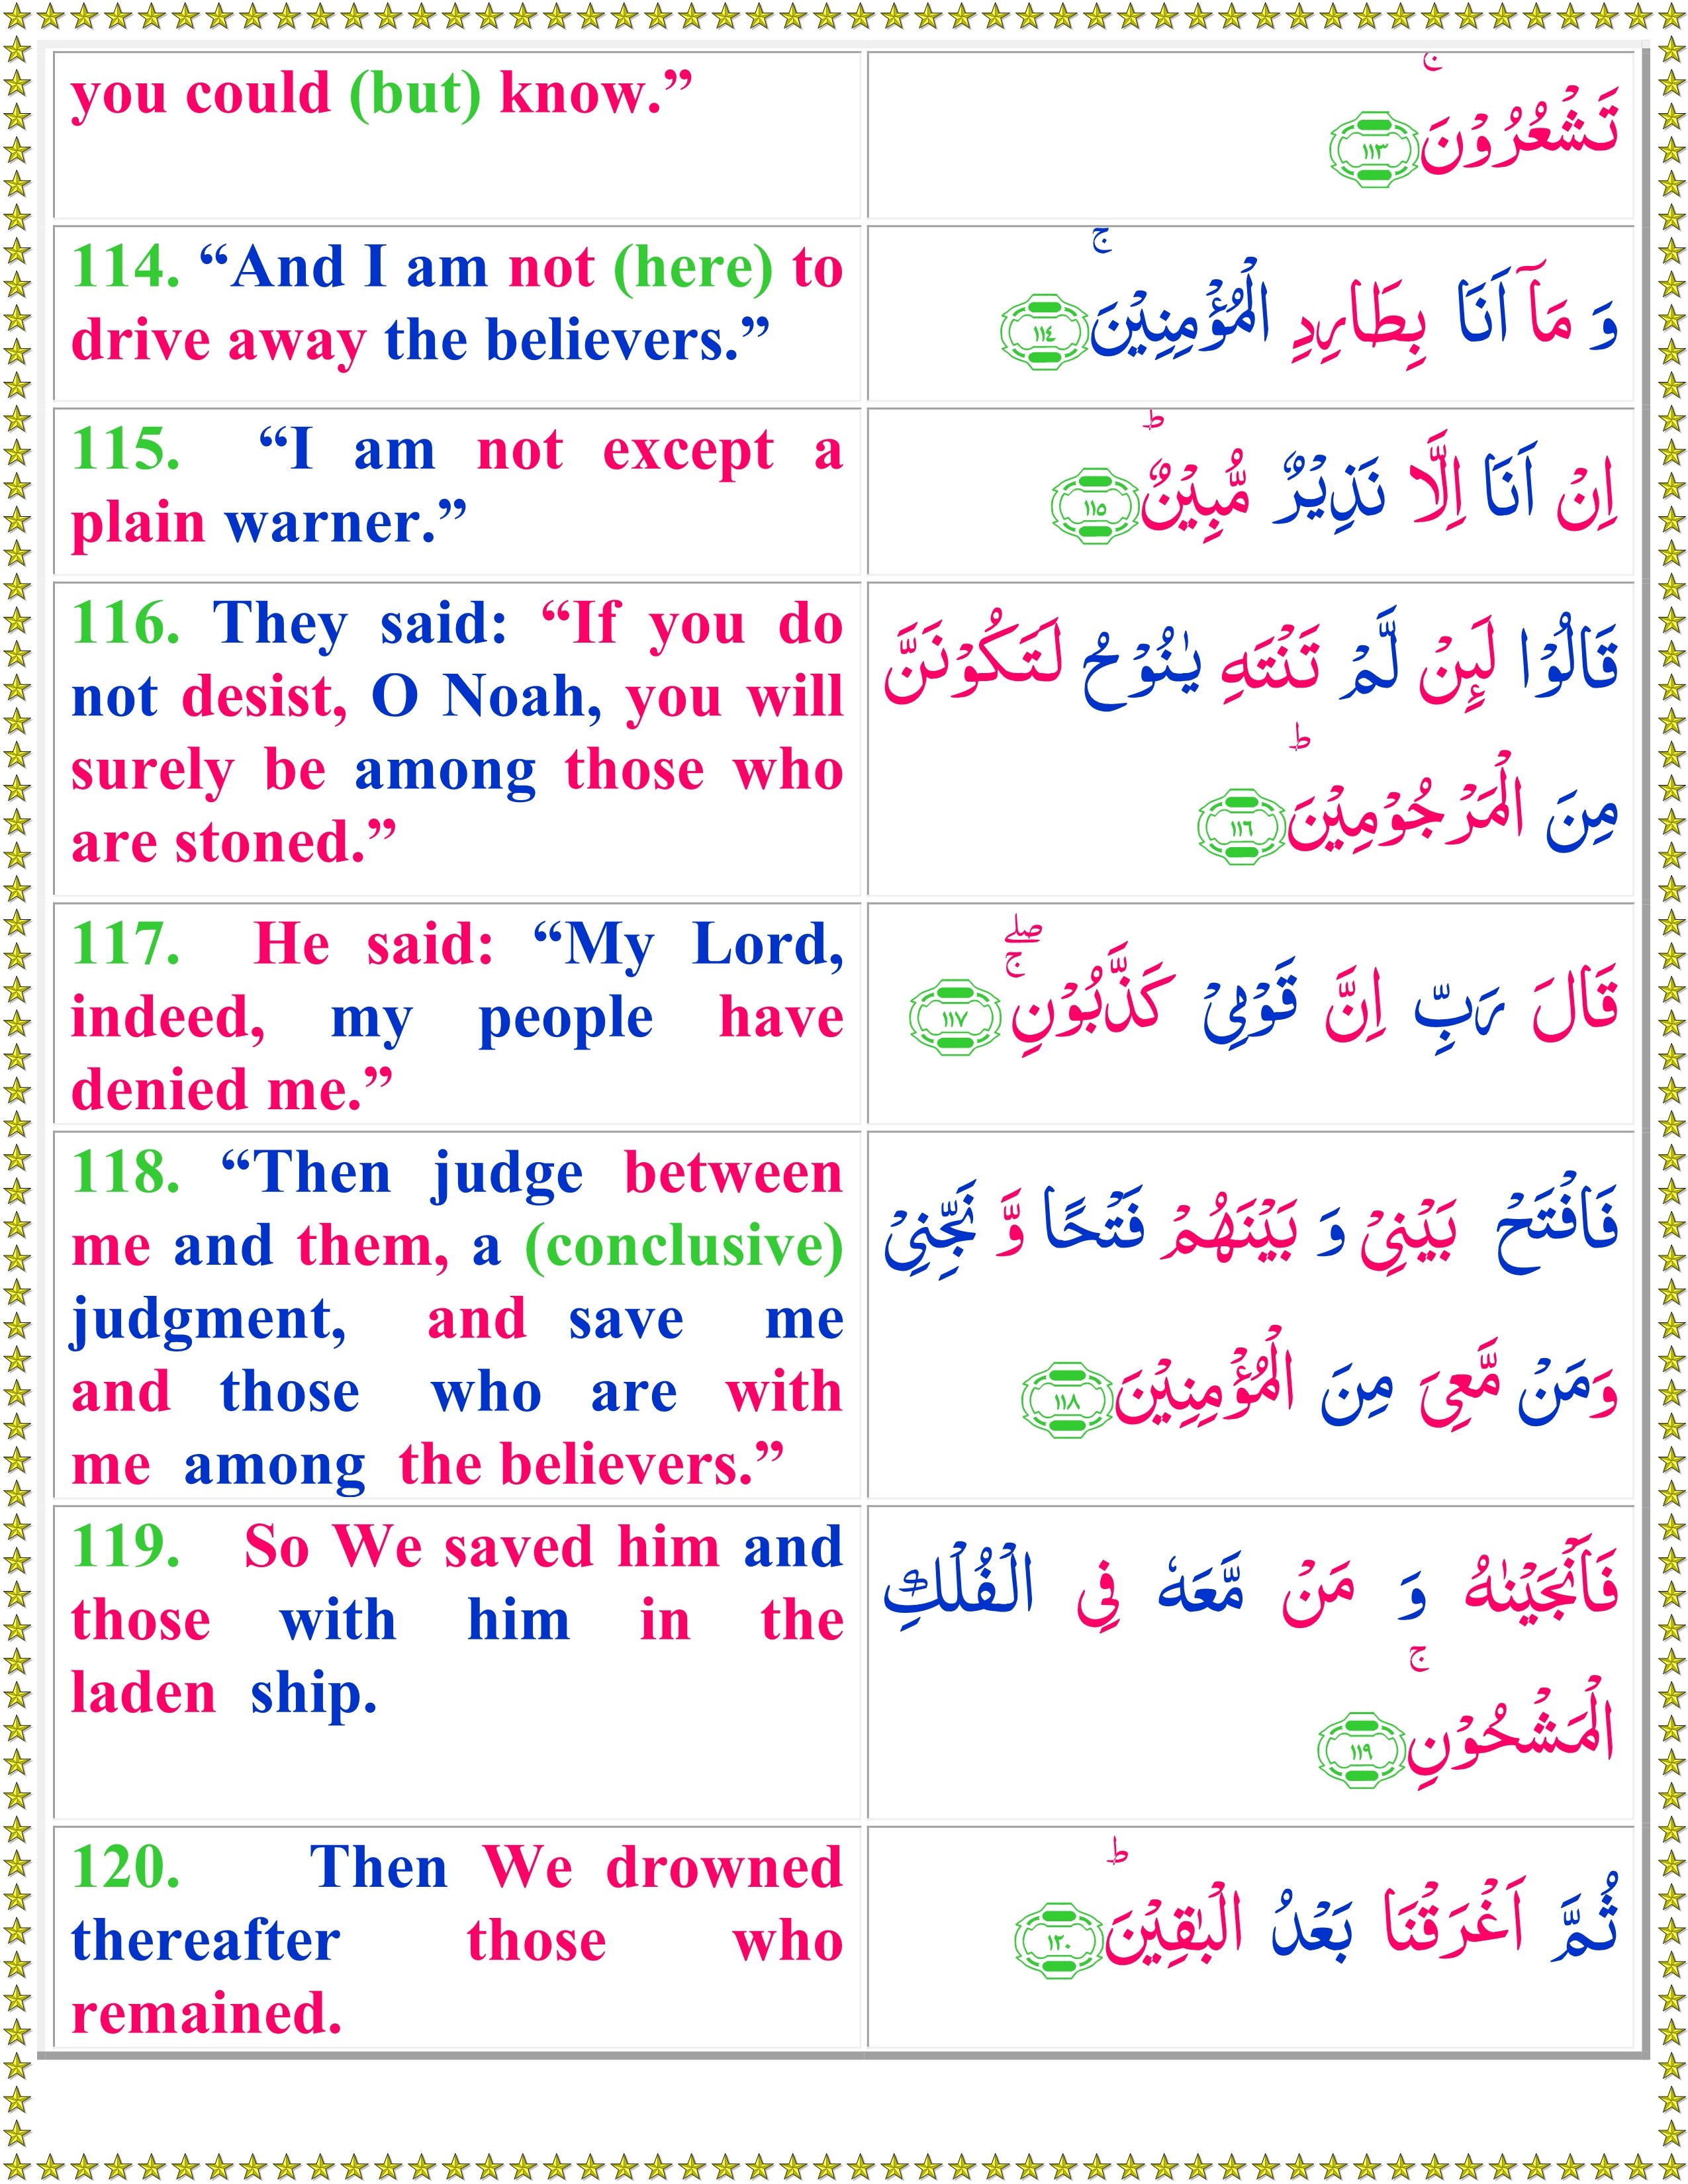 you could (but) know.”
تَشْعُرُوْنَۚ ۝١١٣
114. “And I am not (here) to
drive away the believers.”
وَ مَاۤ اَنَا بِطَارِدِ الْمُؤْمِنِيْنَۚ ۝١١٤
115. “I am not except a
plain warner.”
اِنْ اَنَا اِلَّا نَذِيْرٌ مُّبِيْنٌؕ ۝١١٥
116. They said: “If you do
not desist, O Noah, you will
surely be among those who
are stoned.”
قَالُوْا لَىِٕنْ لَّمْ تَنْتَهِ يٰنُوْحُ لَتَكُوْنَنَّ
مِنَ الْمَرْجُوْمِيْنَؕ ۝١١٦
117. He said: “My Lord,
indeed, my people have
denied me.”
قَالَ رَبِّ اِنَّ قَوْمِيْ كَذَّبُوْنِۚۖ ۝١١٧
118. “Then judge between
me and them, a (conclusive)
judgment, and save me
and those who are with
me among the believers.”
فَافْتَحْ بَيْنِيْ وَ بَيْنَهُمْ فَتْحًا وَّ نَجِّنِيْ
وَمَنْ مَّعِيَ مِنَ الْمُؤْمِنِيْنَ ۝١١٨
119. So We saved him and
those with him in the
laden ship.
فَاَنْجَيْنٰهُ وَ مَنْ مَّعَهٗ فِي الْفُلْكِ
الْمَشْحُوْنِۚ ۝١١٩
120. Then We drowned
thereafter those who
remained.
ثُمَّ اَغْرَقْنَا بَعْدُ الْبٰقِيْنَؕ ۝١٢٠